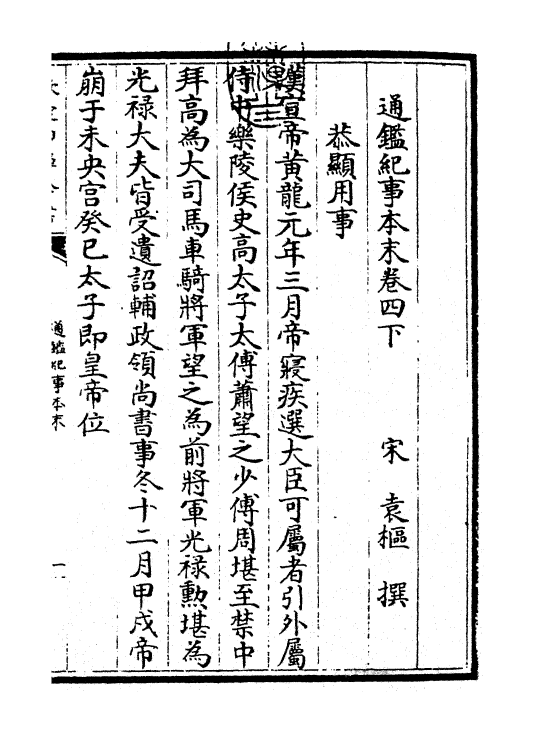 通鑑紀事本末卷四下
宋 袁樞 撰
恭顯用事
漢宣帝黃龍元年三月帝寢疾選大臣可屬者引外屬
侍中樂陵侯史高太子太傅蕭望之少傅周堪至禁中
拜高為大司馬車騎將軍望之為前將軍光祿勲堪為
光祿大夫皆受遺詔輔政領尚書事冬十二月甲戌帝
崩于未央宮癸巳太子即皇帝位
通鑑紀事本末